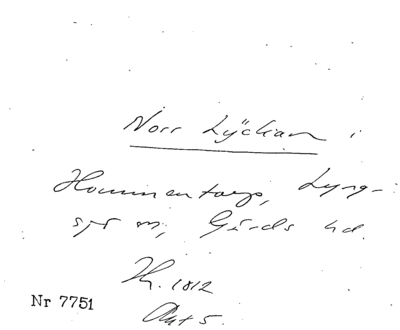 Norr Lyckan i
Hommentorp, Lyng-
sjö sn, Gärds hd.
Th. 1812
Akt 5.
Nr 7751